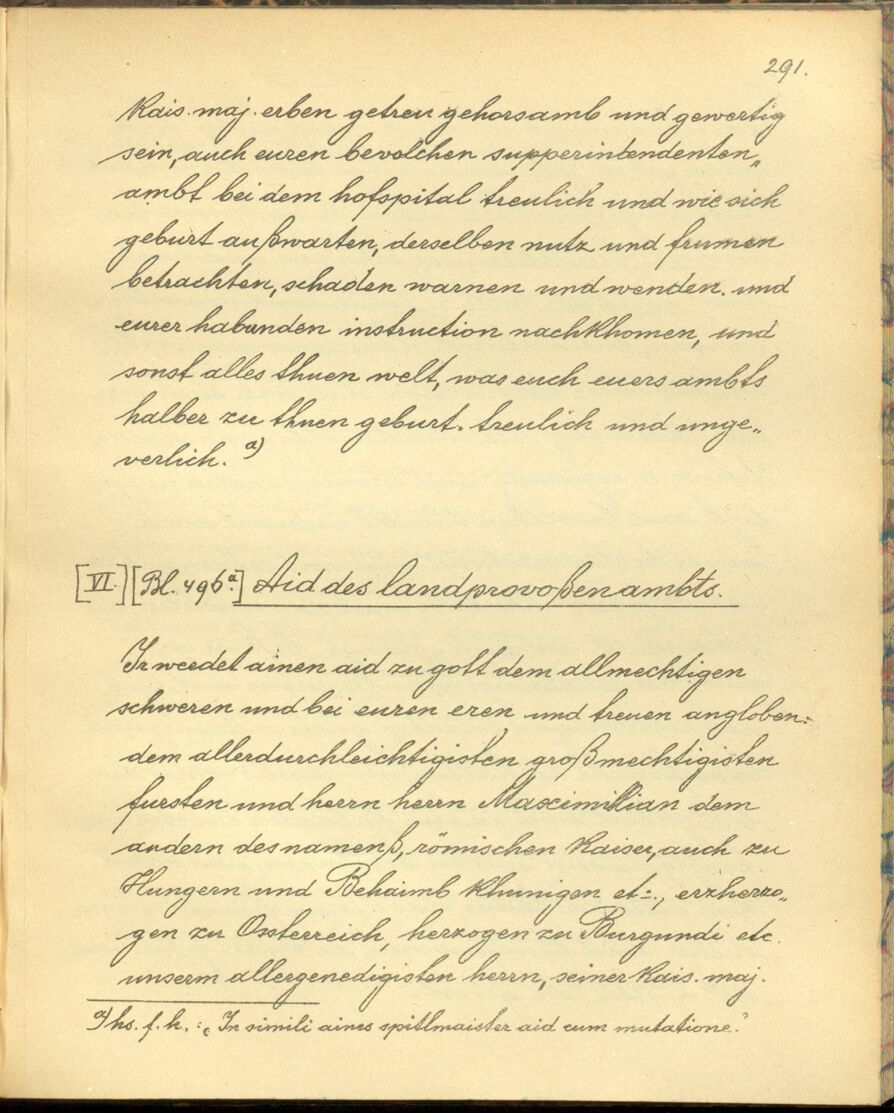 291.
Kais. maj. erben getreu gehorsamb und gewertig
sein, auch euren bevolchen supperintendenten„
ambt bei dem hofspital treulich und wie sich
geburt außwarten, derselben nutz und frumen
betrachten, schaden warnen und wenden. und
eurer habenden instruction nachkhomen, und
sonst alles thuen welt, was euch euers ambts
halber zu thuen geburt. treulich und unge„
verlich. a)
[VI.] [Bl. 496a.] Aid des landprovoßenambts.
Ir werdet ainen aid zu gott dem allmechtigen
schweren und bei euren eren und treuen angloben:
dem allerdurchleichtigisten großmechtigisten
fursten und herrn herrn Maximilian dem
andern des namenß, römischen Kaiser, auch zu
Hungern und Behaimb khunigen et:., erzherzo„
gen zu Ossterreich, herzogen zu Burgundi etc.
unserm allergenedigisten herrn, seiner Kais. maj.
a) hs. f. h. : „In simili aines spitlmaister aid cum mutatione."